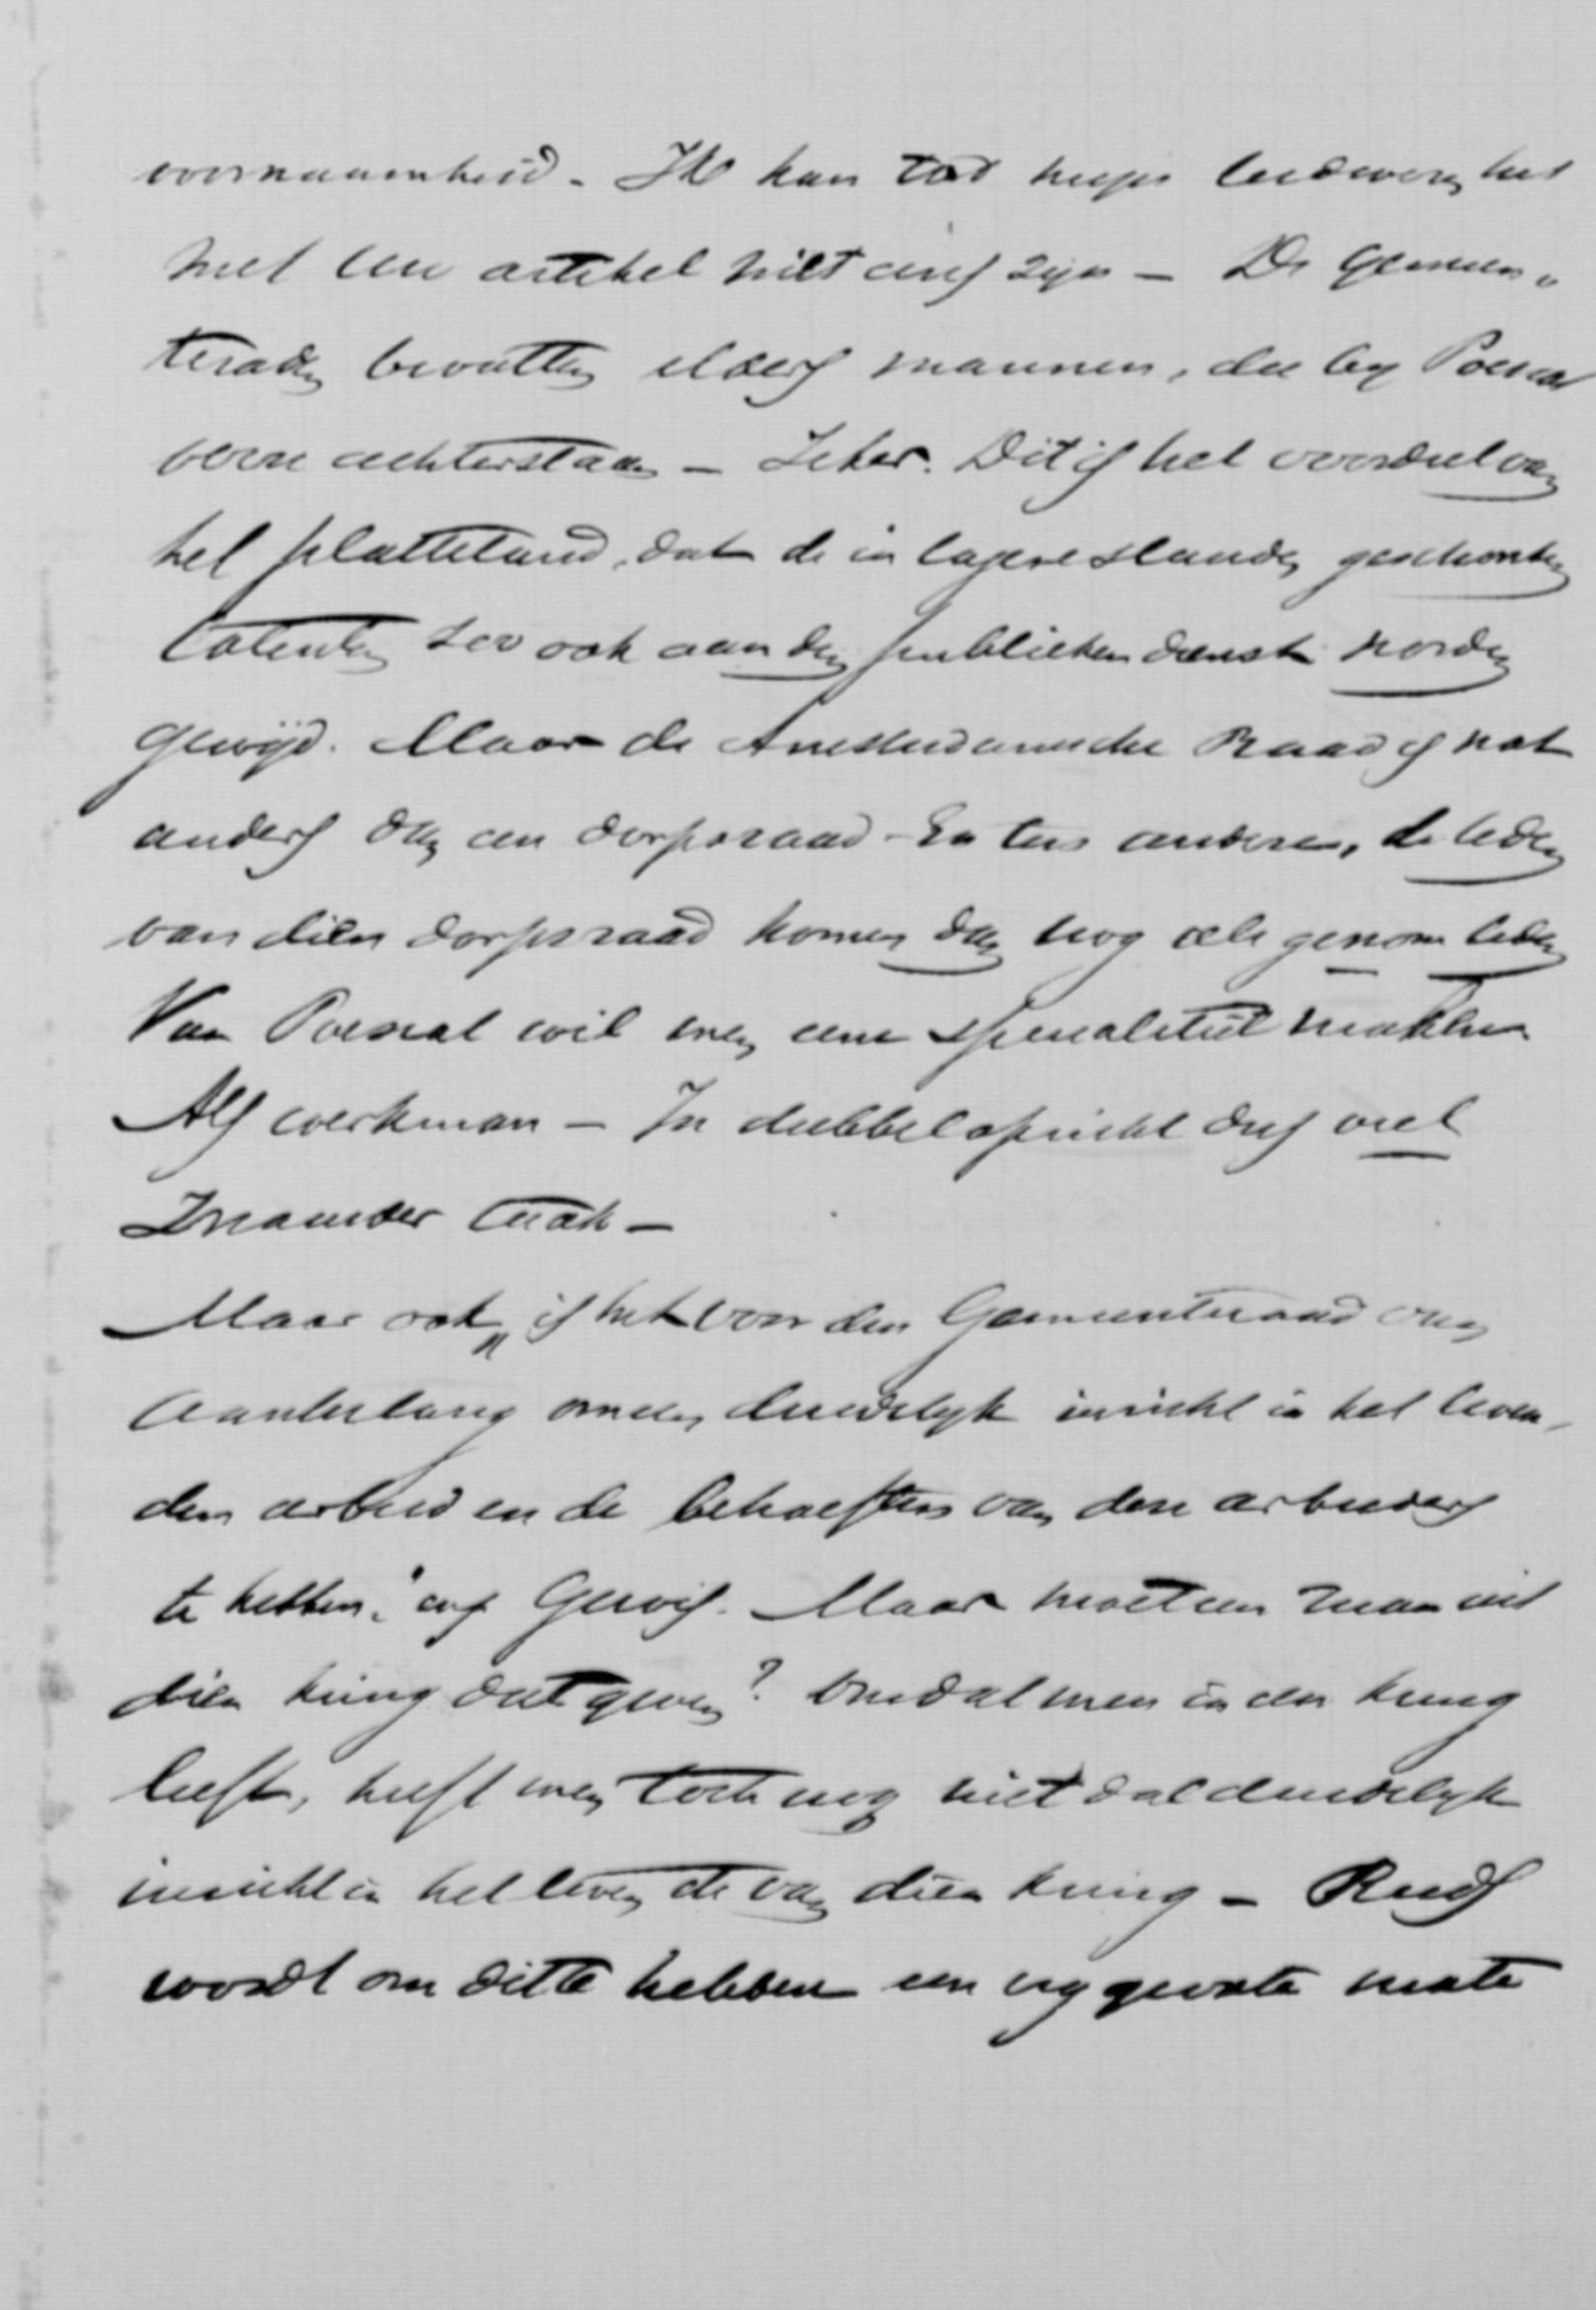 voornaamheid. Ik kan tot mijn leedwezen het
met uw artikel niet eens zijn — De Gemeen„
teraden bevatten elders mannen, die bij Poesiat
verre achterstaan — Zeker. Dit is het voordeel van
het platteland, dat de in lagere standen geschonken
talenten zoo ook aan den publieken dienst worden
gewijd. Maar de Amsterdamsche Raad is wat
anders dan een dorpsraad - En ten andere, de leden
van dien dorpsraad komen dan nog als gewone leden
Van Poesiat wil men eene specialiteit maken
Als werkman — In dubbel opzicht dus veel
Zwaarder taak —
Maar ook „is het voor den Gemeenteraad van
aanbelang om een duidelijk inzicht in het leven,
den arbeid en de behoeften van den arbeiders
te hebben." enz Gewis. Maar moet een man uit
dien kring dat geven? Omdat men in een kring
leeft, heeft men toch nog niet dat duidelijk
inzicht in het leven de van dien kring — Reeds
wordt om dit te hebben een vrij groote mate